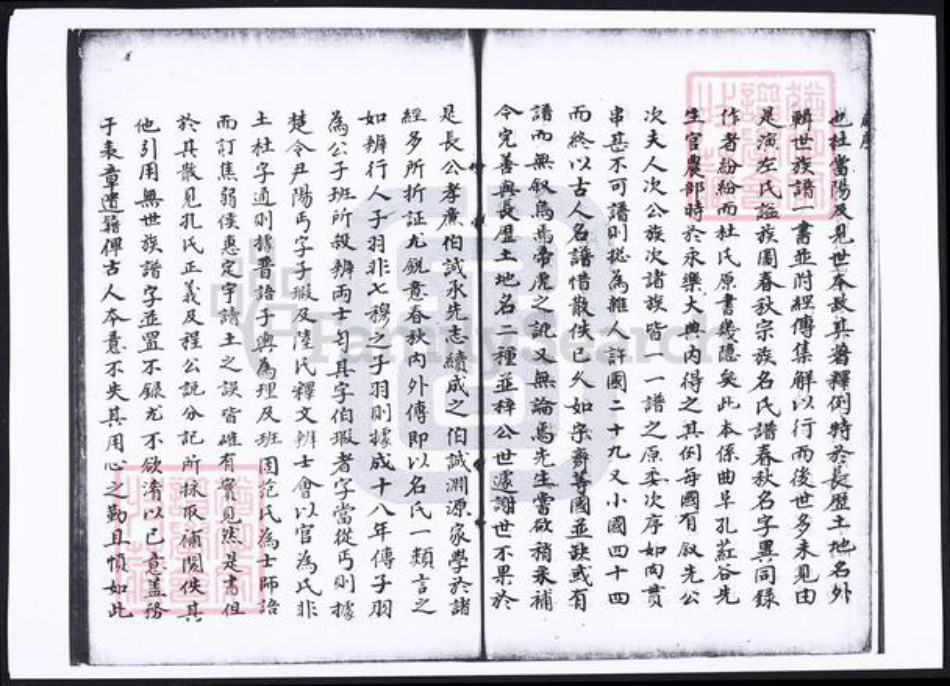 也杜當陽及見世本故其著釋例特於長歷土地名外
輯世族譜一書並附經傳集解以行而後世多未見由
是演左氏諡族圖春秋宗族名氏譜春秋名字異同錄
作者紛紛而杜氏原書幾隱矣此本係曲阜孔葒谷先
生官農部時於永樂大典內得之其例每國有叙先公
次夫人次公族次諸族皆一一譜之原委次序如肉貫
串甚不可譜則總為雜人計國二十九又小國四十四
而終以古人名譜惜散佚已久如宋齊等國並缺或有
譜而無叙烏焉帝虎之訛又無論焉先生嘗欲稍采補
令完善與長歷土地名二種並梓公世遽謝世不果於
是長公孝廉伯誠承先志續成之伯誠淵源家學於諸
經多所折証尤銳意春秋內外傳即以名氏一類言之
如辨行人子羽非七穆之子羽則據成十八年傳子羽
為公子班所殺辨兩士匄其字伯瑕者字當從丐則據
楚令尹陽丐字子瑕及陸氏釋文辨士會以官為氏非
土杜字通則據晋語子輿為理及班固范氏為士師語
而訂焦弱侯惠定宇讀土之誤皆確有實見然是書但
於其散見孔氏正義及程公說分記所採取補闕佚其
他引用無世族譜字並置不錄尤不欲淆以已意蓋務
于表章遺籍俾古人本意不失其用心之勤且慎如此
FamilySearch